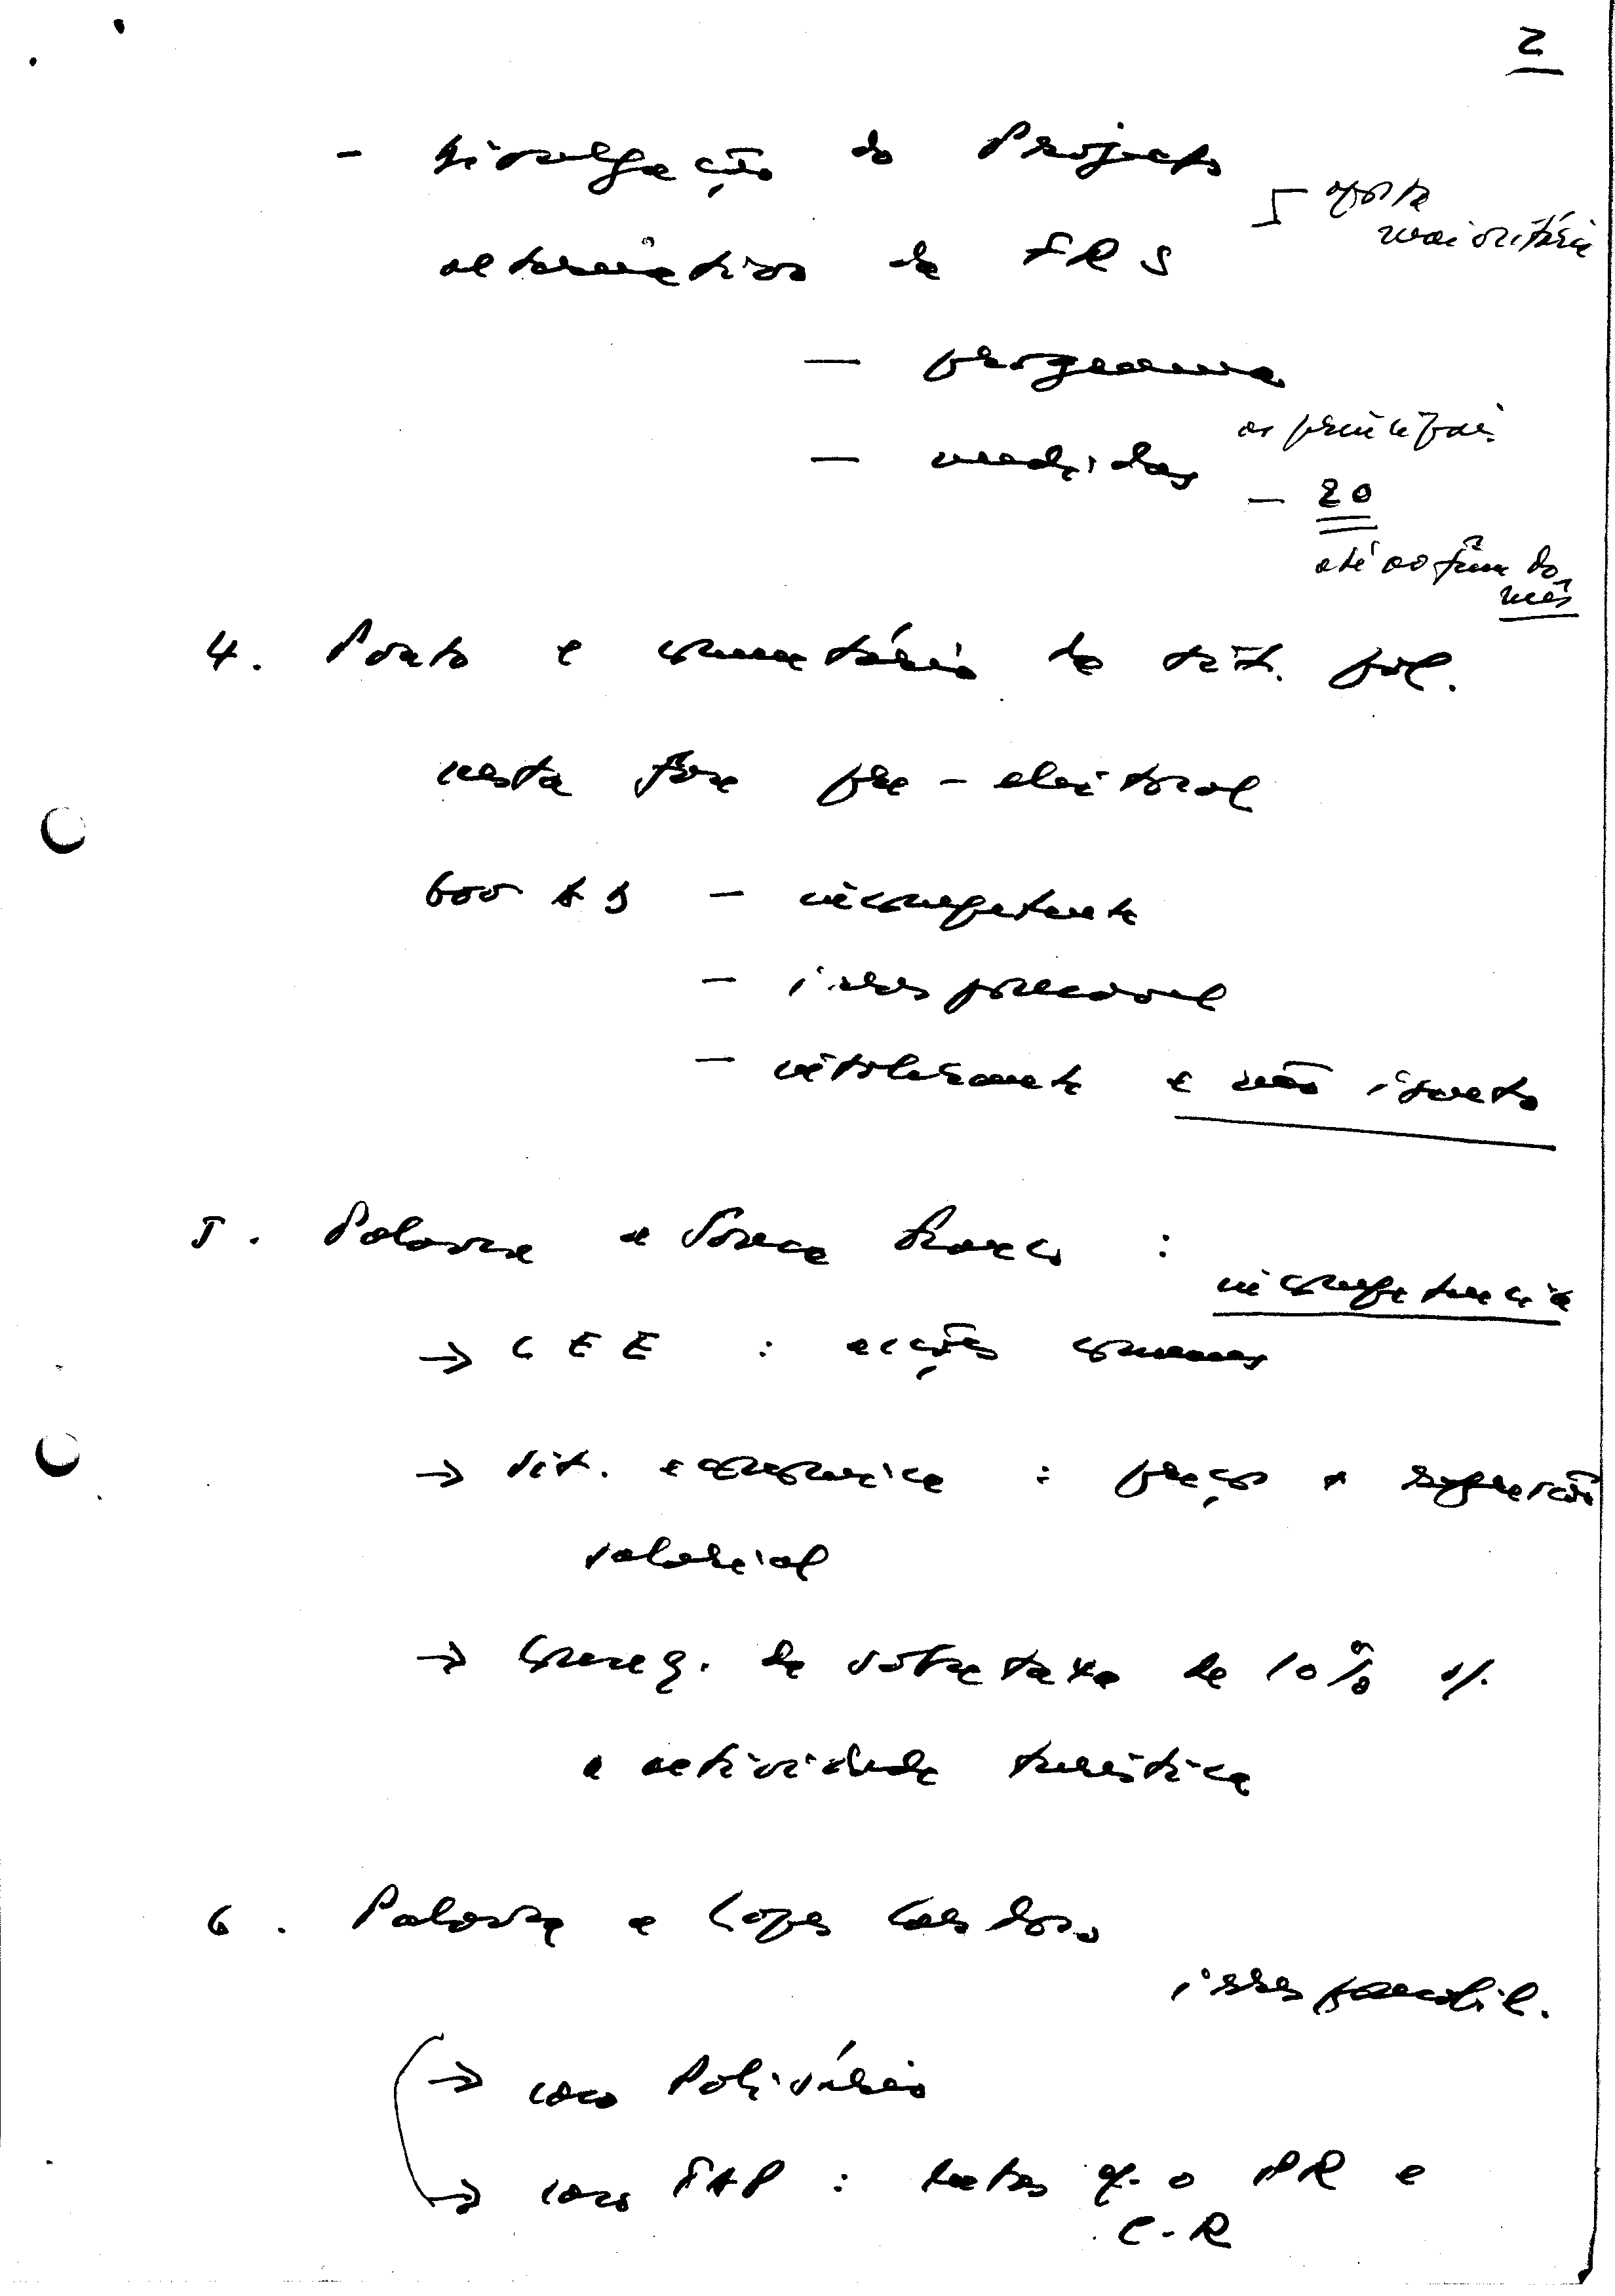 2
- Divulgação do Projecto
aposta
maioritária
alternativo da FRS
— programa
— medidas
as principais
— 20
até ao fim do
mês
4. Ponto e comentário da sit. pol.
nesta fase pré-eleitoral
Gov AD — incompetente
— irresponsável
— intolerante e não isento
5. Palavra a Sousa Franco :
incompetência
→ CEE : acções comuns
→ Sit. económica : preços e
salarial
→ Conseq. da sobretaxa de 10% s/.
a actividade turística
6. Palavra a Lopes Cardoso
irresponsabil.
→ caso Polivário
→ caso FAP : lutas q. o PR e
C-R